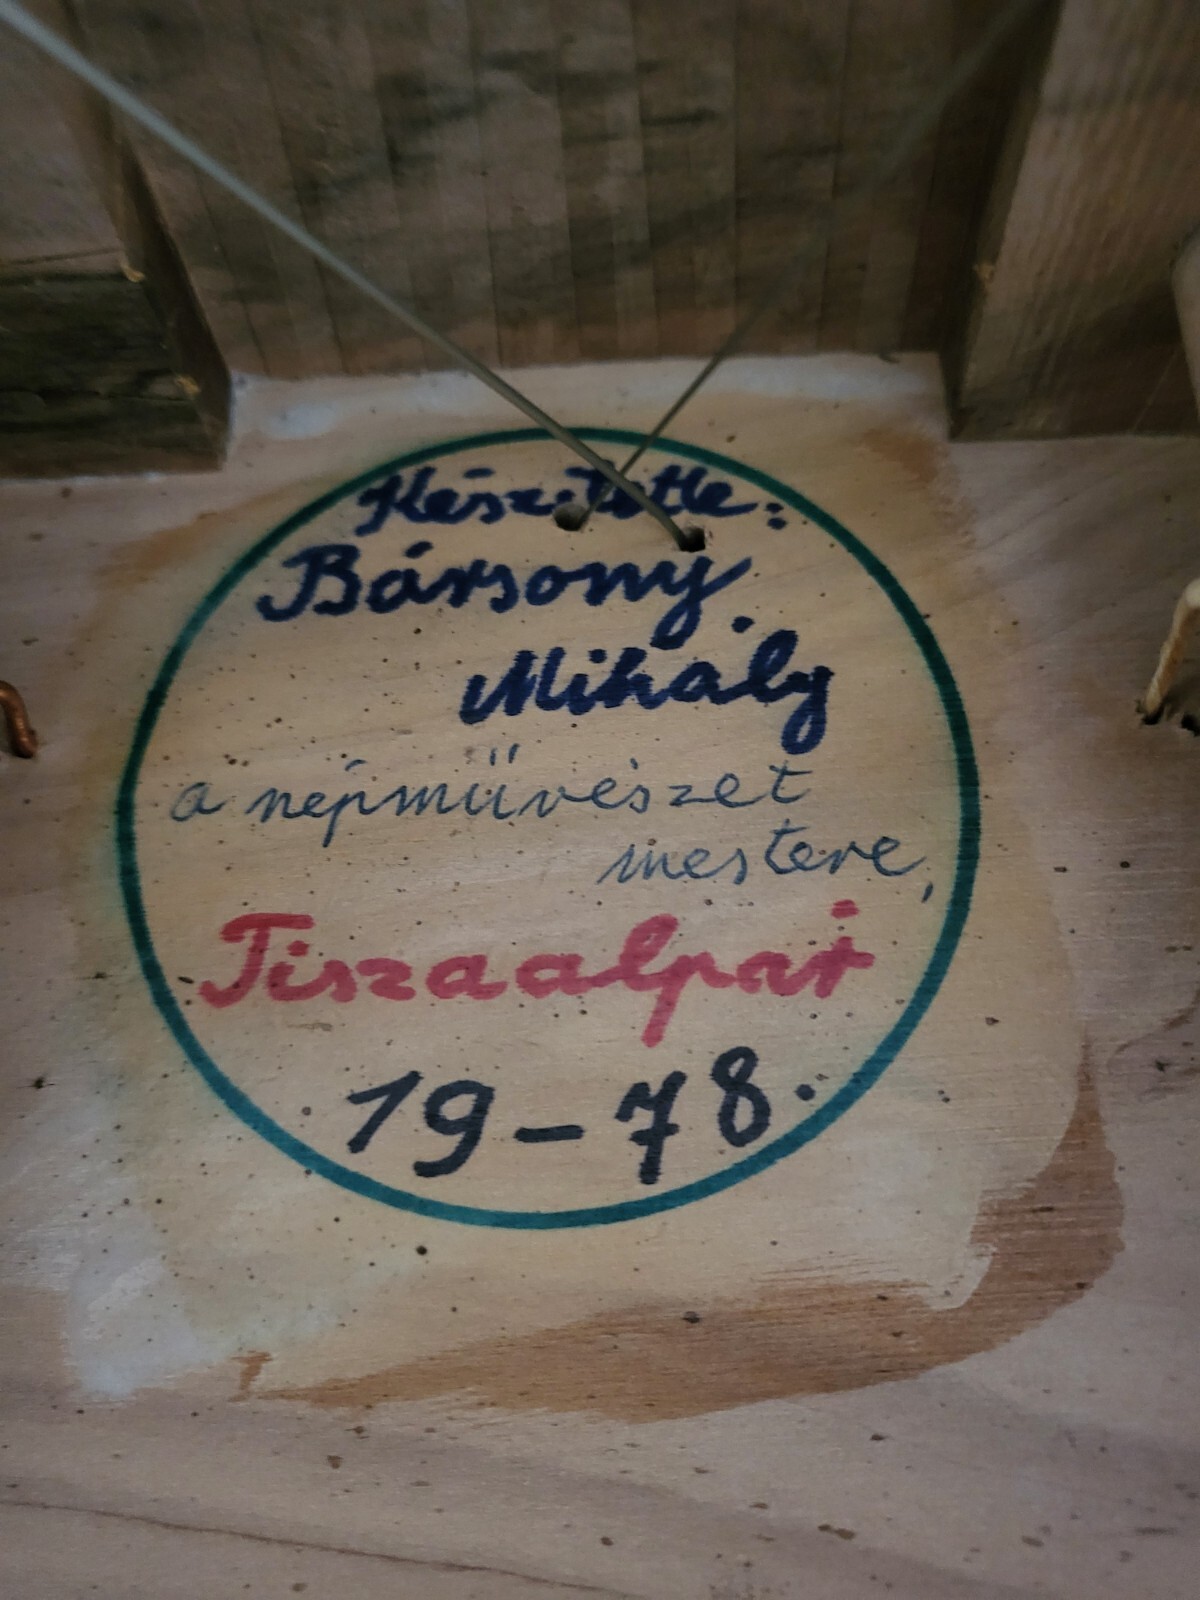 Készitette:
Bársony
Mihály
a népművészet
mestere,
Tiszaalpár
19-78.